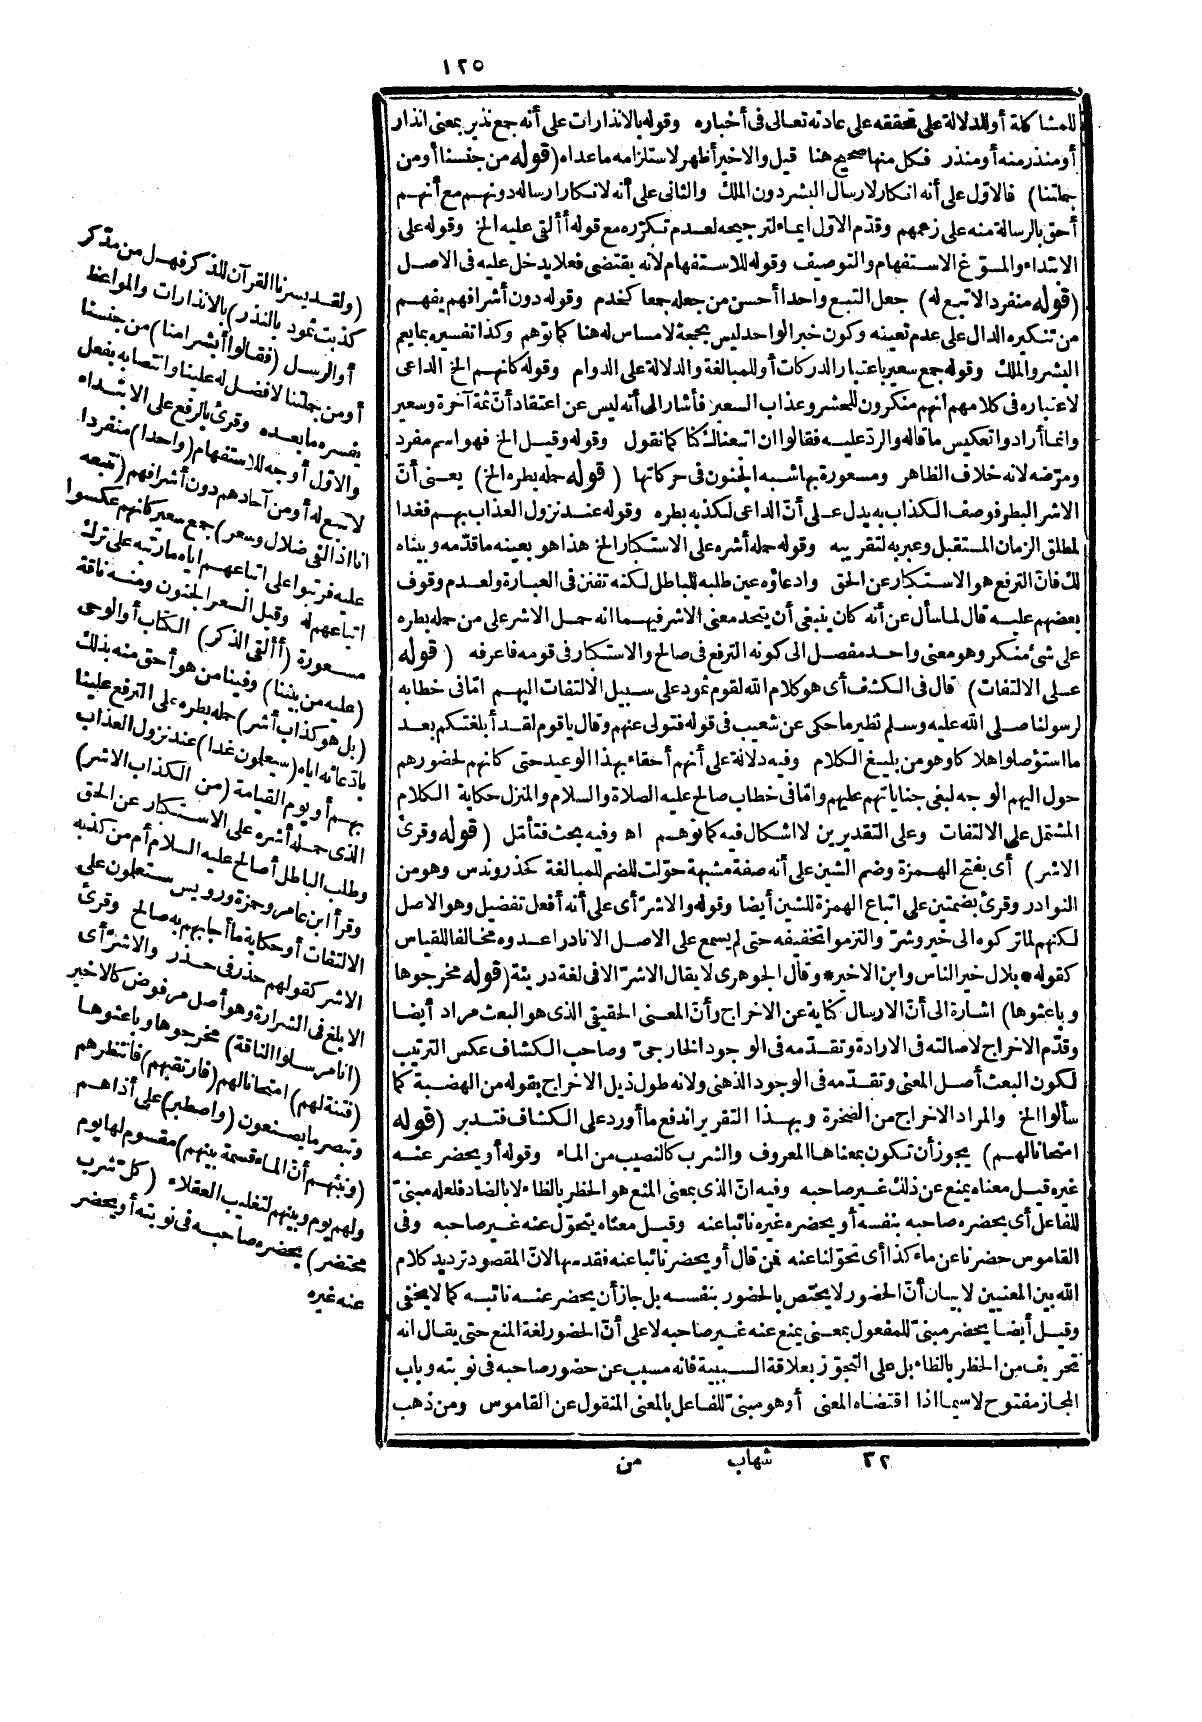 ١٢٥
للمشاكلة أو للدلالة على تحققه على عادته تعالى فى أخباره وقوله بالانذارات على أنه جمع نذير بمعنى انذار
أو منذر منه أو منذر فكل منها صحيح هنا قيل والاخير أظهر لاستلزامه ما عداه (قوله من جنسنا أو من
جملتنا) فالاوّل على أنه انكار لارسال البشر دون الملك والثانى على أنه لانكار ارساله دونهم مع أنهم
أحق بالرسالة منه على زعمهم وقدّم الاوّل ايماء لترجيحه لعدم تكرّره مع قوله أألقى عليه الخ وقوله على
الابتداء والمسوّغ الاستفهام والتوصيف وقوله للاستفهام لانه يقتضى فعلا يدخل عليه فى الاصل
(قوله منفردا لاتبع له) جعل التبع واحدا أحسن من جعله جمعا كخدم وقوله دون أشرافهم يفهم
من تنكيره الدال على عدم تعينه وكون خبر الواحد ليس بحجة لا مساس له هنا كما توهم وكذا تفسيره بما يعم
البشر والملك وقوله جمع سعير باعتبار الدركات أو للمبالغة والدلالة على الدوام وقوله كانهم الخ الداعى
لاعتباره فى كلامهم أنهم منكرون للحشر وعذاب السعير فأشار الى أنه ليس عن اعتقاد أنّ ثمة آخرة وسعير
وانما أرادوا تعكيس ما قاله والردّ عليه فقالوا ان اتبعناك كنا كما نقول وقوله وقيل الخ فهو اسم مفرد
ومرّضه لانه خلاف الظاهر ومسعورة بها شبه الجنون فى حركاتها (قوله حمله بطره الخ) يعنى أنّ
الاشر البطر فوصف الكذاب به يدل على أنّ الداعى لكذبه بطره وقوله عند نزول العذاب بهم فغدا
لمطلق الزمان المستقبل وعبر به لتقريبه وقوله حمله أشره على الاستكبار الخ هذا هو بعينه ما قدّمه وبيناه
لك فانّ الترفع هو الاستكبار عن الحق وادعاؤه عين طلبه للباطل لكنه تفنن فى العبارة ولعدم وقوف
بعضهم عليه قال لما سأل عن أنه كان ينبغى أن يتحد معنى الاشر فيهما انه حمل الاشر على من حمله بطره
على شئ منكر وهو معنى واحد مفصل الى كونه الترفع فى صالح والاستكبار فى قومه فاعرفه (قوله
على الالتفات) قال فى الكشف أى هو كلام الله لقوم ثمود على سبيل الالتفات اليهم امّا فى خطابه
لرسولنا صلى الله عليه وسلم نظير ما حكى عن شعيب فى قوله فتولى عنهم وقال يا قوم لقد أبلغتكم بعد
ما استؤصلوا هلاكا وهو من بليغ الكلام وفيه دلالة على أنهم أحقاء بهذا الوعيد حتى كانهم لحضورهم
حول اليهم الوجه لينعى جناياتهم عليهم وامّا فى خطاب صالح عليه الصلاة والسلام والمنزل حكاية الكلام
المشتمل على الالتفات وعلى التقديرين لا اشكال فيه كما توهم اه وفيه بحث فتأمّل (قوله وقرئ
الاشر) أى بفتح الهمزة وضم الشين على أنه صفة مشبهة حوّلت للضم للمبالغة كحذر وندس وهو من
النوادر وقرئ بضمتين على اتباع الهمزة للشين أيضا وقوله والاشرّ أى على أنه أفعل تفضيل وهو الاصل
لكنهم لما تركوه الى خير وشرّ والتزموا تخفيفه حتى لم يسمع على الاصل الا نادرا عدوه مخالفا للقياس
كقوله * بلال خير الناس وابن الاخير * وقال الجوهرى لا يقال الاشرّ الا فى لغة رديئة (قوله مخرجوها
وباعثوها) اشارة الى أنّ الارسال كناية عن الاخراج وأنّ المعنى الحقيقى الذى هو البعث مراد أيضا
وقدّم الاخراج لاصالته فى الارادة وتقدّمه فى الوجود الخارجىّ وصاحب الكشاف عكس الترتيب
لكون البعث أصل المعنى وتقدّمه فى الوجود الذهنى ولانه طول ذيل الاخراج بقوله من الهضبة كما
سألوا الخ والمراد الاخراج من الصخرة وبهذا التقرير اندفع ما أورد على الكشاف فتدبر (قوله
امتحانا لهم) يجوز أن تكون بمعناها المعروف والشرب كالنصيب من الماء وقوله أو يحضر عنه
غيره قيل معناه يمنع عن ذلك غير صاحبه وفيه انّ الذى بمعنى المنع هو الحظر بالظاء لا بالضاد فلعله مبنىّ
للفاعل أى يحضره صاحبه بنفسه أو يحضره غيره نائبا عنه وقيل معناه يتحوّل عنه غير صاحبه وفى
القاموس حضرنا عن ماء كذا أى تحوّلنا عنه فمن قال أو يحضر نائبا عنه فقد سها لانّ المقصود ترديد كلام
الله بين المعنيين لا بيان أنّ الحضور لا يختص بالحضور بنفسه بل جاز أن يحضر عنه نائبه كما لا يخفى
وقيل أيضا يحضر مبنىّ للمفعول بمعنى يمنع عنه غير صاحبه لا على أنّ الحضور لغة المنع حتى يقال انه
تحريف من الحظر بالظاء بل على التجوّز بعلاقة السببية فانه مسبب عن حضور صاحبه فى نوبته وباب
المجاز مفتوح لا سيما اذا اقتضاه المعنى أو هو مبنىّ للفاعل بالمعنى المنقول عن القاموس ومن ذهب
(ولقد يسرنا القرآن للذكر فهل من مدّكر
كذبت ثمود بالنذر) بالانذارات والمواعظ
أو الرسل (فقالوا أبشرا منا) من جنسنا
أو من جملتنا لا فضل له علينا وانتصابه بفعل
يفسره ما بعده وقرئ بالرفع على الابتداء
والاوّل أوجه للاستفهام (واحدا) منفردا
لا تبع له أو من آحادهم دون أشرافهم (نتبعه
انا اذا لفى ضلال وسعر) جمع سعير كانهم عكسوا
عليه فرتبوا على اتباعهم اياه ما رتبه على ترك
اتباعهم له وقيل السعر الجنون ومنه ناقة
مسعورة (أألقى الذكر) الكتاب أو الوحى
(عليه من بيننا) وفينا من هو أحق منه بذلك
(بل هو كذاب أشر) حمله بطره على الترفع علينا
بادّعائه اياه (سيعلمون غدا) عند نزول العذاب
بهم أو يوم القيامة (من الكذاب الاشر)
الذى حمله أشره على الاستكبار عن الحق
وطلب الباطل أصالح عليه السلام أم من كذبه
وقرأ ابن عامر وحمزة ورويس ستعلمون على
الالتفات أو حكاية ما أجابهم به صالح وقرئ
الاشر كقولهم حذر فى حذر والاشرّ أى
الابلغ فى الشرارة وهو أصل مرفوض كالاخير
(انا مرسلوا الناقة) مخرجوها وباعثوها
(فتنة لهم) امتحانا لهم (فارتقبهم) فانتظرهم
وتبصر ما يصنعون (واصطبر) على أذاهم
(ونبئهم أنّ الماء قسمة بينهم) مقسوم لها يوم
ولهم يوم وبينهم لتغليب العقلاء (كلّ شرب
محتضر) يحضره صاحبه فى نوبته أو يحضر
عنه غيره
٣٢ شهاب من